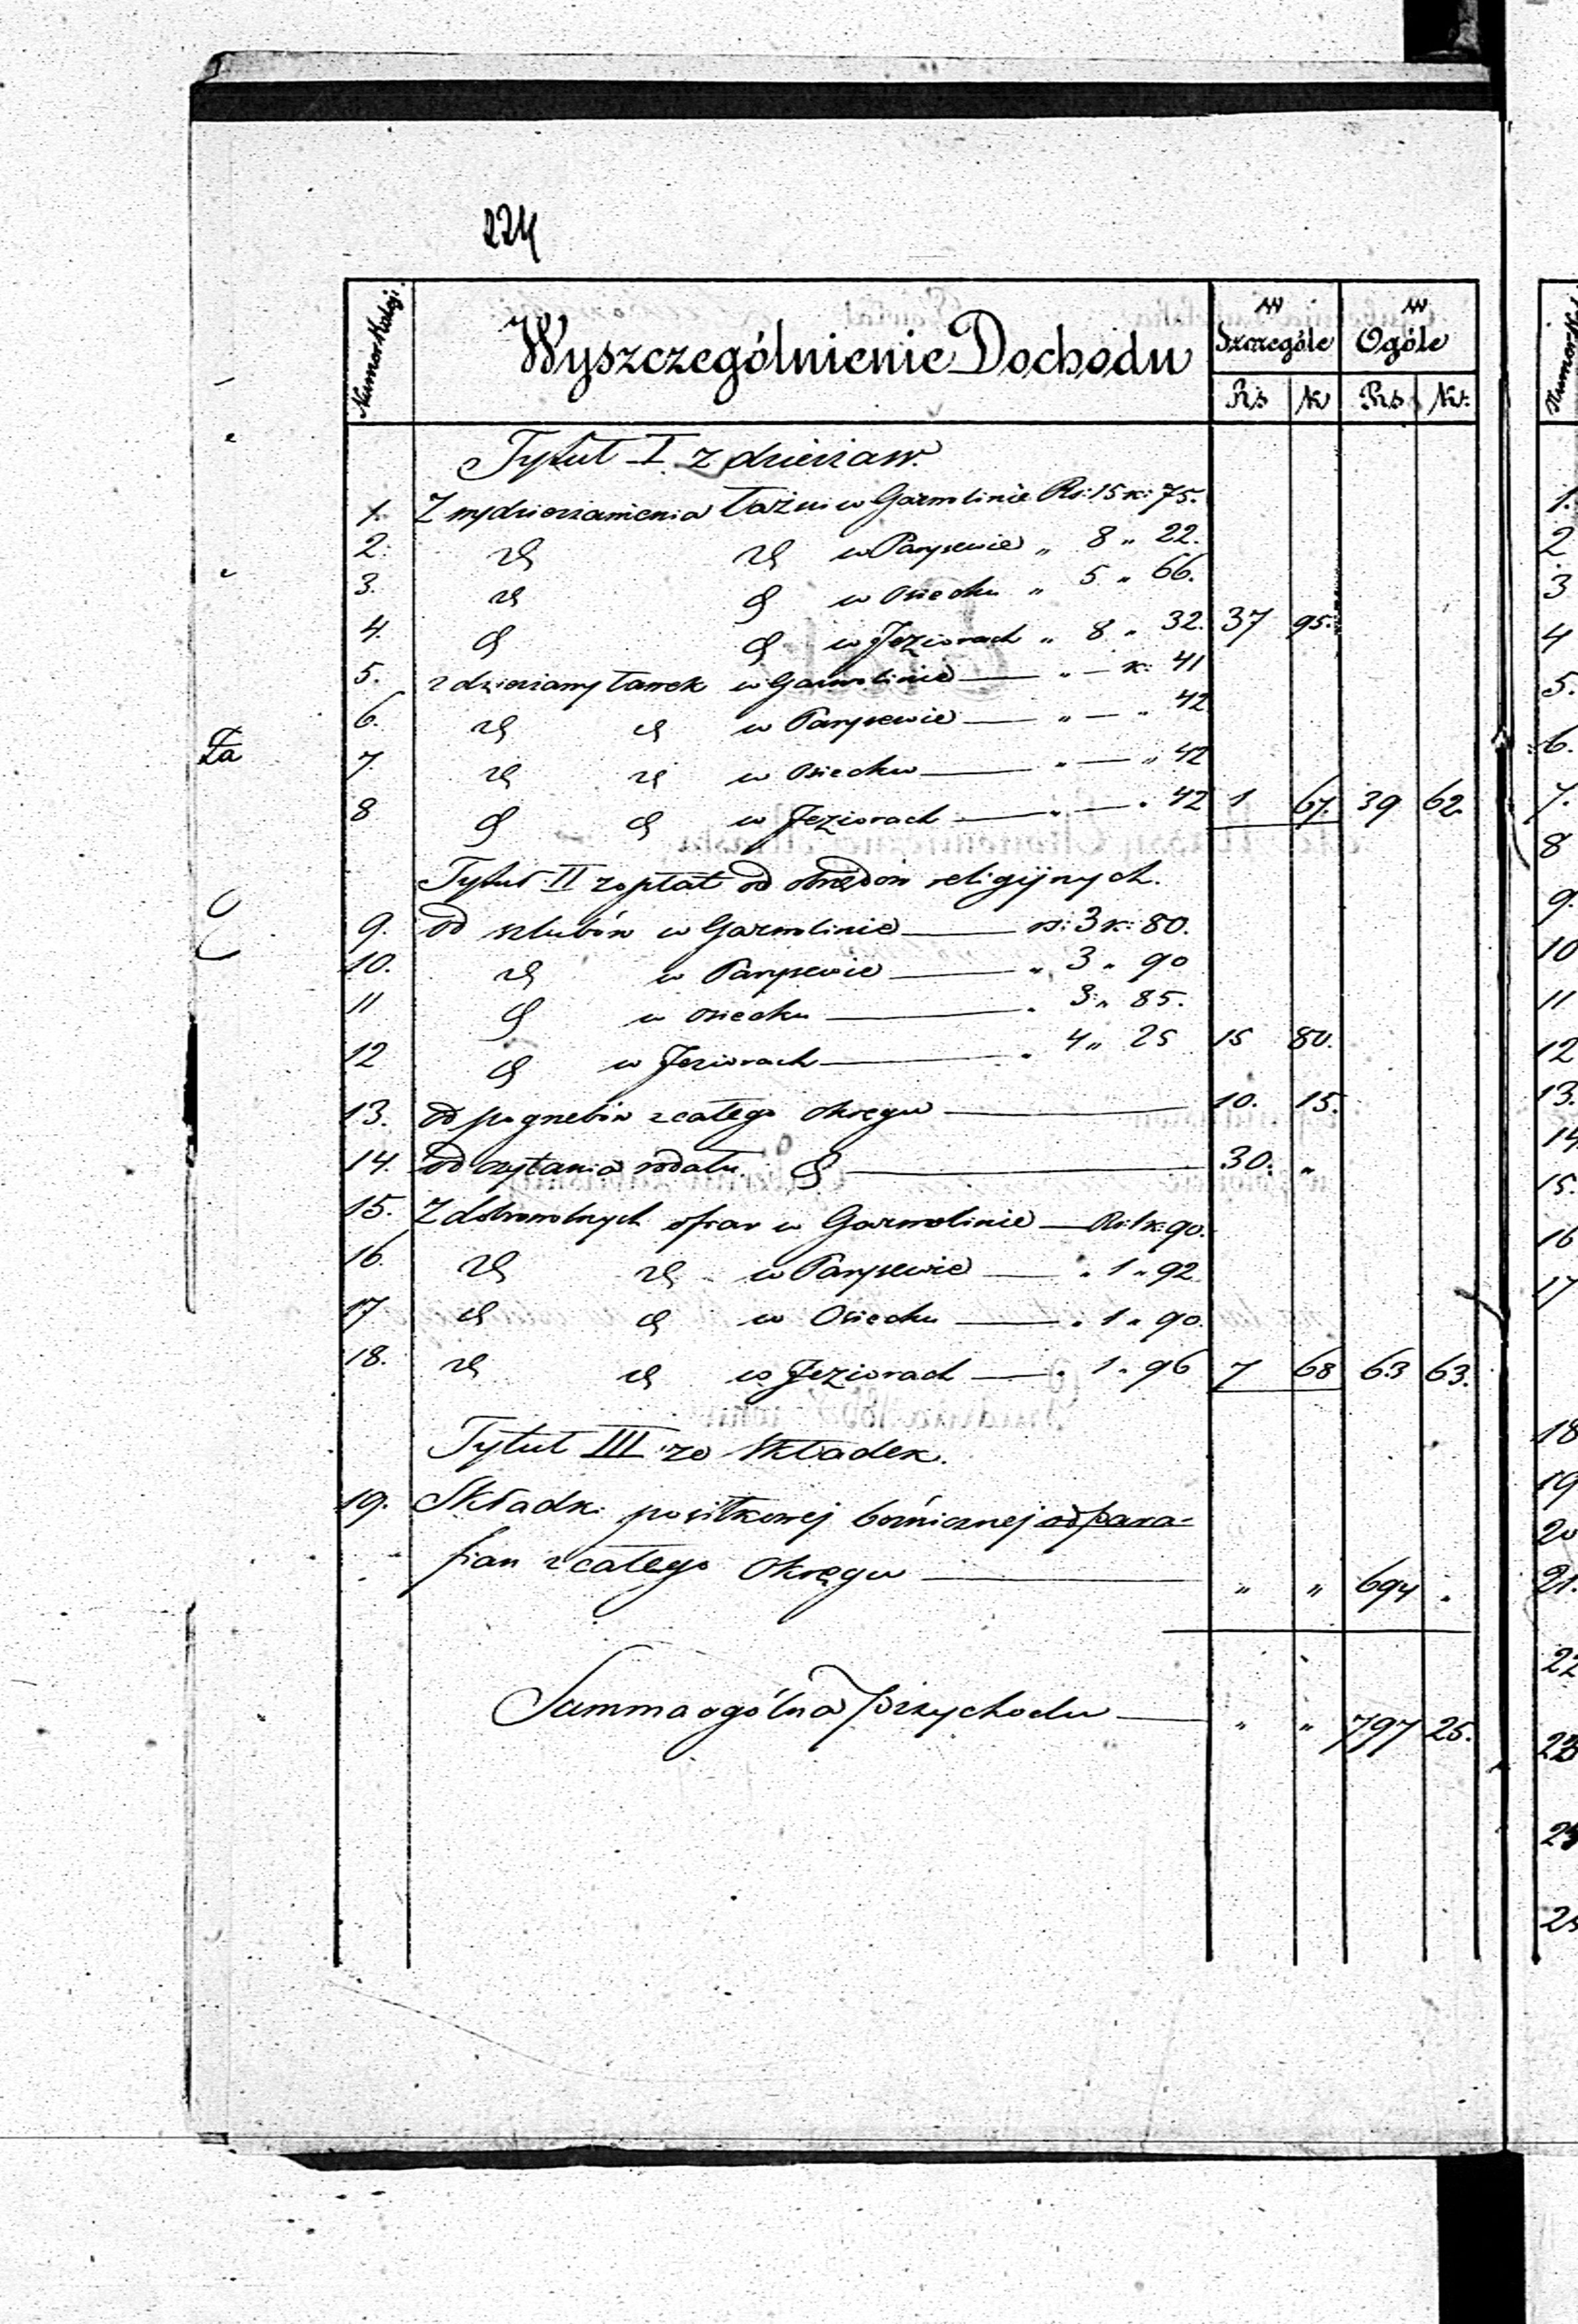 224
Numer Kolej.
Wyszczególnienie Dochodu
w Szczególe
w Ogóle
Rs K Rs K:
Tytuł I z dzierżaw.
1. Z wydzierżawienia Łaźni w Garwolinie Rs: 15 k: 75.
2. w Parysewie „ 8 „ 22.
3. w Osiecku „ 5 „ 66.
4. w Jeziorach „ 8 „ 32. 37 95.
5. z dzierżawy ławek w Garwolinie — „ — k: 41
6. w Parysewie — „ — „ 42
7. w Osiecku — „ — „ 42
8 w Jeziorach — „ — „ 42 1 67. 39 62.
Tytuł II z opłat od obrzędów religijnych.
9. od szlubów w Garwolinie — rs: 3 k: 80.
10. w Parysewie — „ 3 „ 90
11 w Osiecku — „ 3 „ 85.
12 w Jeziorach — „ 4 „ 25 15 80.
13. od pogrzebów z całego okręgu — 10. 15.
14. od czytania rodału — 30. „
15. Z dobrowolnych ofiar w Garwolinie — Rs: 1 k: 90.
16. w Parysewie — „ 1 „ 92
17 w Osiecku — „ 1 „ 90.
18. w Jeziorach — „ 1 „ 96 7 68 63 63.
Tytuł III ze Składek.
19. Składki posiłkowej bóżnicznej od para-
fian z całego Okręgu — „ „ 694 „
Summa ogólna Przychodu — „ „ 797 25.
Za
1.
2
3
4
5.
6.
7.
8
9.
10
11
12
13.
14.
15.
16
17
18
19
20
21.
22
23
24